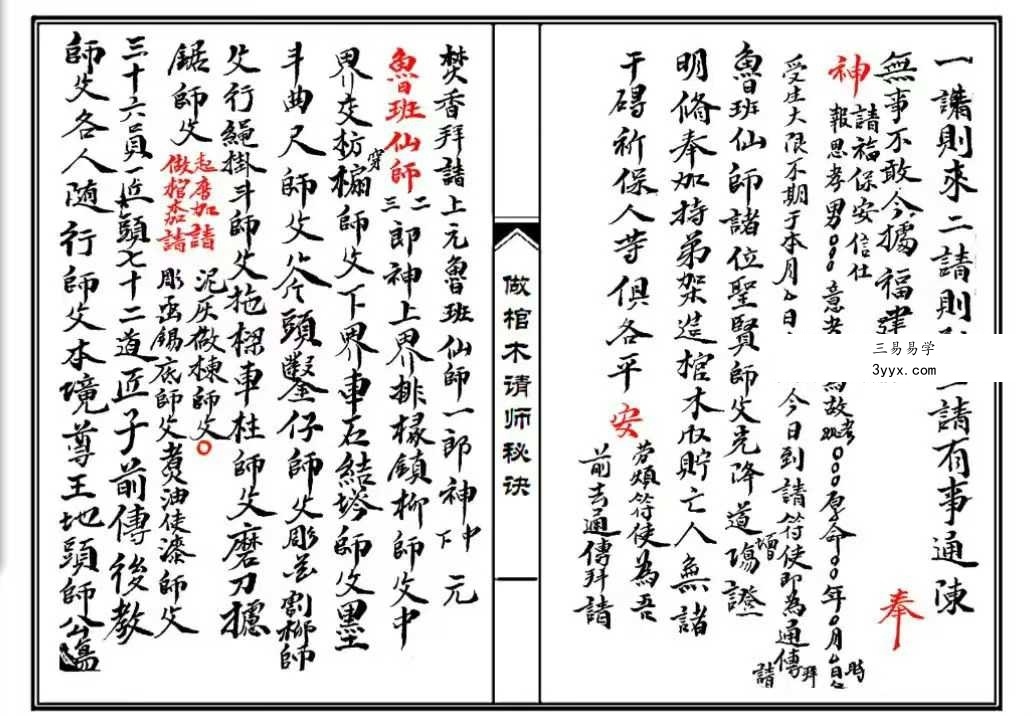 一請則來二請則
一請有事通陳
無事不敢今據福建
奉
神
請福保安信仕
報恩孝男〇〇〇意者
為故考妣〇〇〇原命〇〇年〇月〇日〇時
受生大限不期于本月〇日
今日到請符使即為通傳拜請
魯班仙師諸位聖賢師父先降道場證
明修奉加持弟架造棺木収貯亡人無諸
干碍祈保人等俱各平
安
劳煩符使為吾
前去通傳拜請
三易易学
3yyx.com
做棺木请师秘诀
焚香拜請上元魯班仙師一郎神中元
下
魯班仙師二郎神上界排椽鎖柳師父中
三
界交枋穿榍師父下界車石結塔師父墨
斗曲尺師父斧頭鑿仔師父彫花割柳師
父行繩掛斗師父拖樑車柱師父磨刀攄
鋸師父
起厝加請
做棺木請
泥灰散棟師父〇
彫画錫底師父煑油使漆師父
三十六員匠頭七十二道匠子前傳後教
師父各人随行師父本境尊王地頭師公